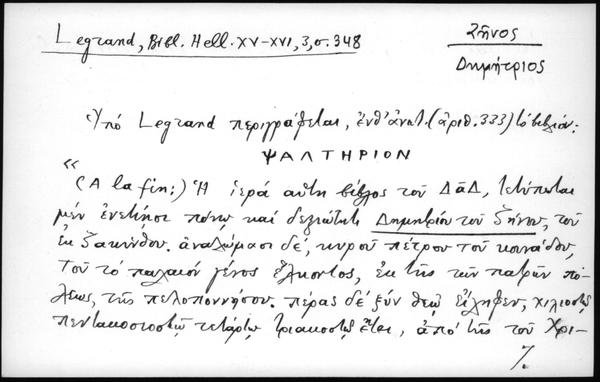 Legrand, Bibl. Hell. XV-XVI, 3, σ. 348
Ζῆνος
Δημήτριος
Ὑπό Legrand περιγράφεται, ἐνθ' ἀνωτ. (ἀριθ. 333) τό βιβλίον:
ΨΑΛΤΗΡΙΟΝ
« (A la fin:) Ἡ ἱερά αὕτη βίβλος τοῦ Δᾱδ, τετύπωται
μέν ἐνετίησι πόνῳ καί δεξιότητι Δημητρίου τοῦ Ζήνου, τοῦ
ἐκ Ζακύνθου. ἀναλώμασι δέ, κυροῦ πέτρου τοῦ κουνάδου,
τοῦ τό παλαιόν γένος ἕλκοντος, ἐκ τῆς τῶν πατρῶν πό-
λεως, τῆς πελοποννήσου. πέρας δέ ξύν θεῷ εἴληφεν, χιλιοστῷ
πεντακοσιοστῷ τετάρτῳ τριακοστῷ ἔτει, ἀπό τῆς τοῦ Χρι-
%